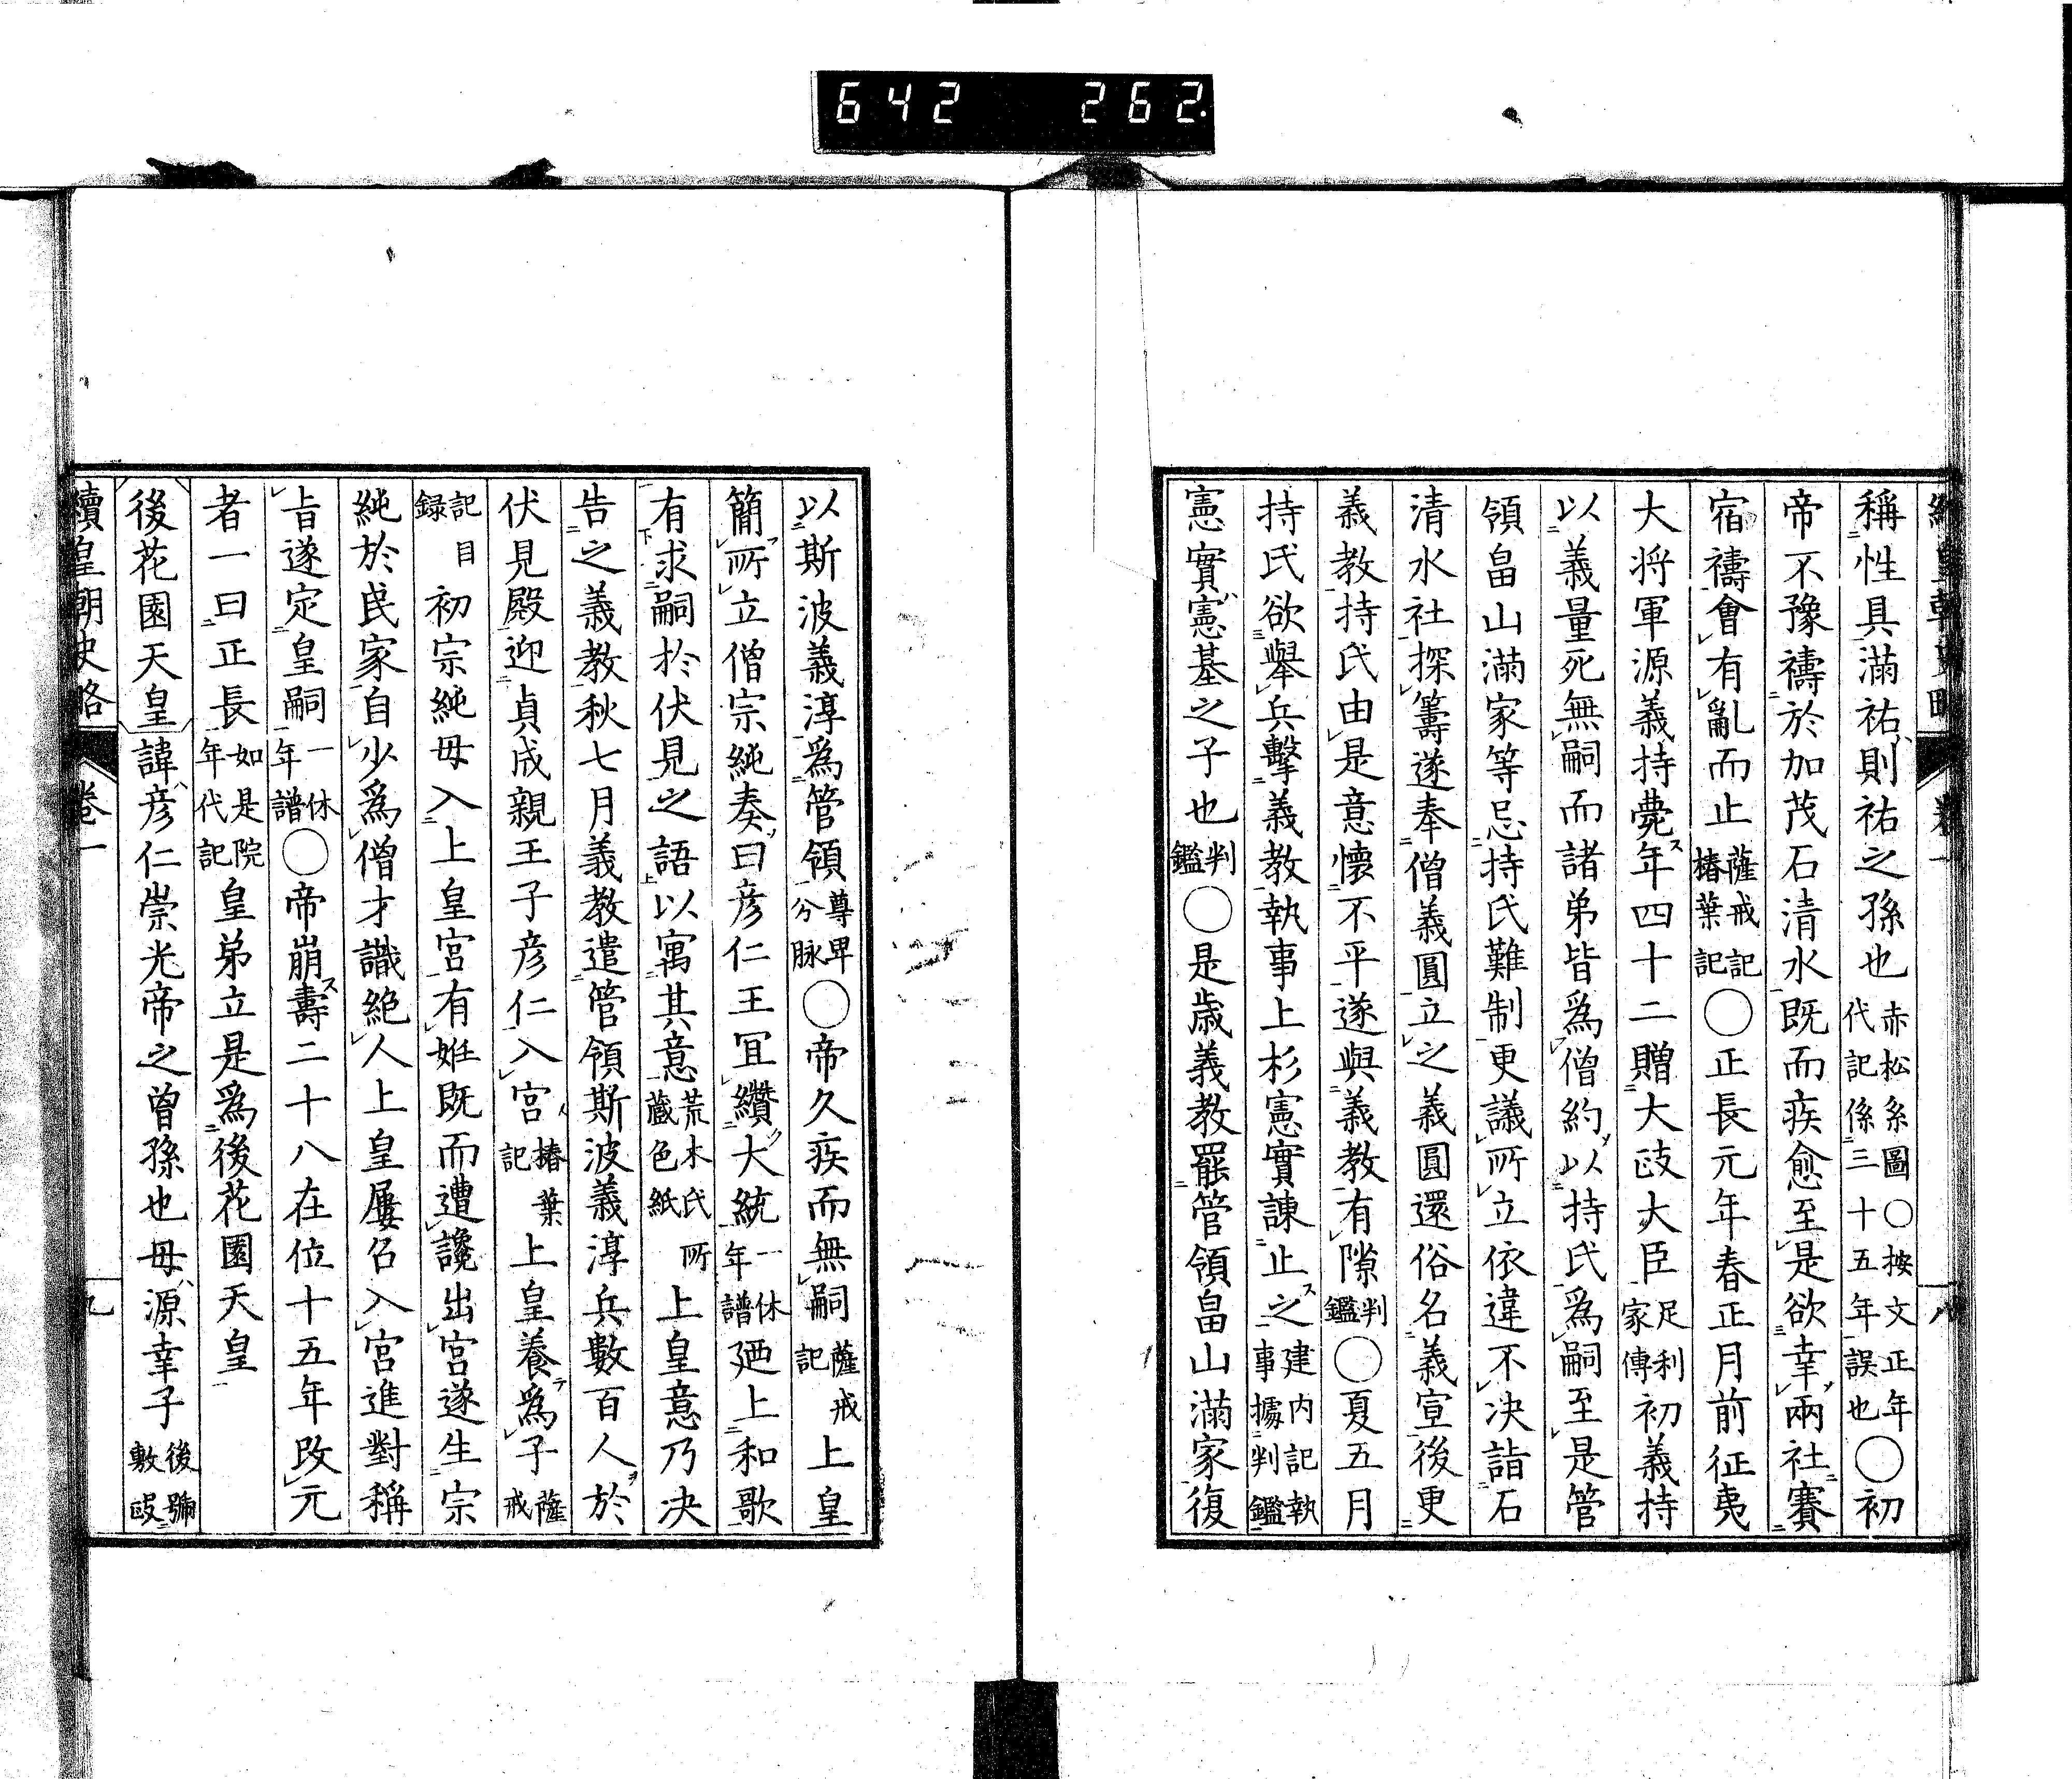 642 262
稱性具滿祐則祐之孫也赤松系圖○按文正年代記係三十五年誤也○初
帝不豫禱於加茂石清水既而疾愈至是欲幸兩社賽
宿禱會有亂而止薩戒記椿葉記○正長元年春正月前征夷
大将軍源義持薨年四十二贈大政大臣足利家傳初義持
以義量死無嗣而諸弟皆爲僧約以持氏爲嗣至是管
領畠山滿家等忌持氏難制更議所立依違不决詣石
清水社探籌遂奉僧義圓立之義圓還俗名義宣後更
義教持氏由是意懷不平遂與義教有隙判鑑○夏五月
持氏欲舉兵擊義教執事上杉憲實諫止之建内記執事據判鑑
憲實憲基之子也判鑑○是歳義教罷管領畠山滿家復
以斯波義淳爲管領尊卑分脉○帝久疾而無嗣薩戒記上皇
簡所立僧宗純奏曰彦仁王冝纉大統一休年譜廼上和歌
有求嗣於伏見之語以寓其意荒木氏所藏色紙上皇意乃决
告之義教秋七月義教遣管領斯波義淳兵數百人於
伏見殿迎貞成親王子彦仁入宮椿葉記上皇養爲子薩戒
記目録初宗純母入上皇宮有姙既而遭讒出宮遂生宗
純於民家自少爲僧才識絶人上皇屢召入宮進對稱
旨遂定皇嗣一休年譜○帝崩壽二十八在位十五年改元
者一曰正長如是院年代記皇弟立是爲後花園天皇
後花園天皇諱彦仁崇光帝之曽孫也母源幸子後號敷政
續皇朝史略 卷一 九